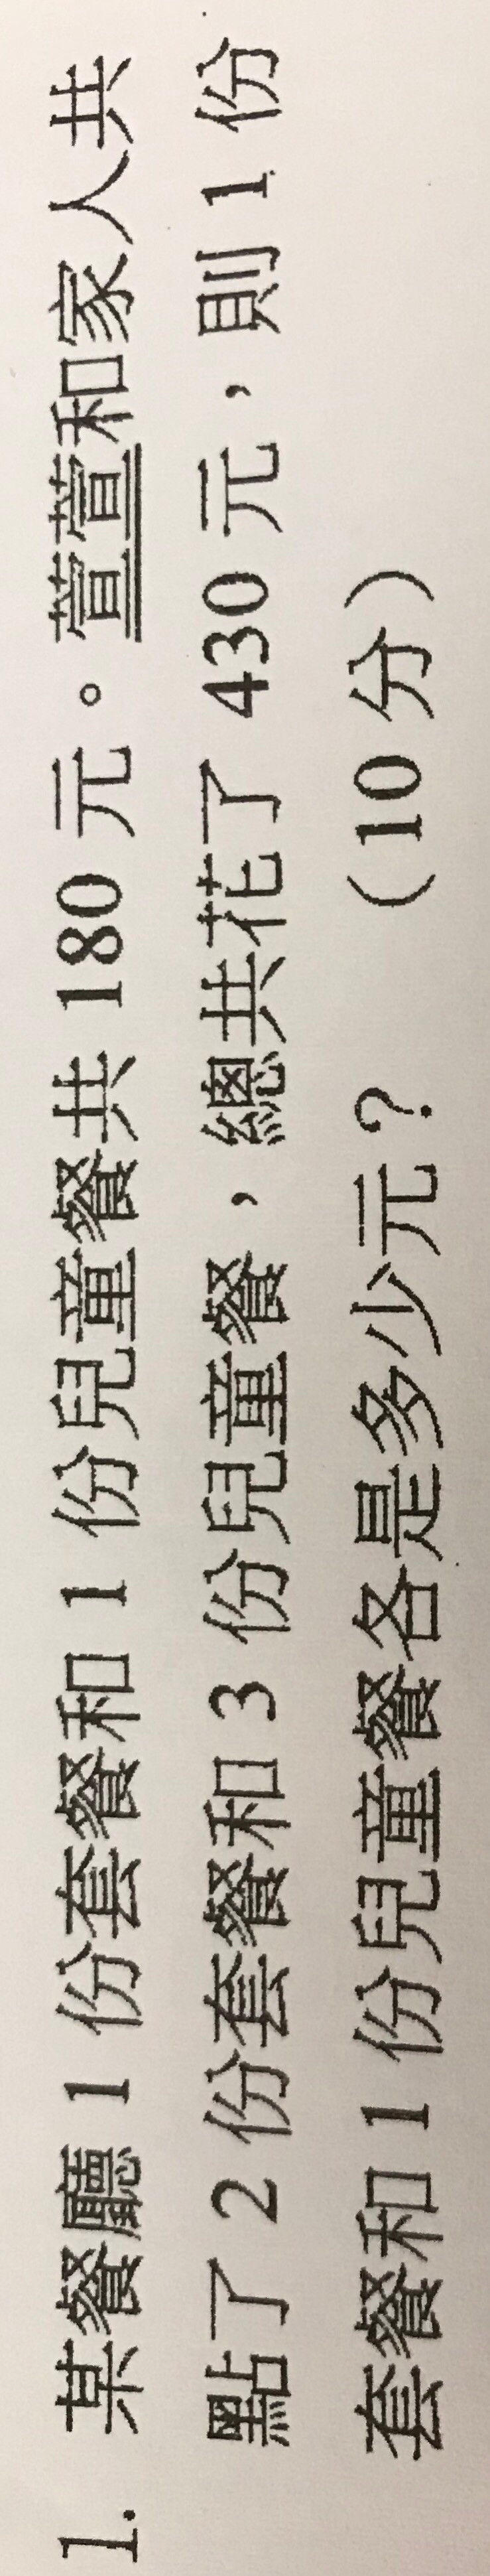 1. 某餐廳 1 份套餐和 1 份兒童餐共 180 元。萱萱和家人共
點了 2 份套餐和 3 份兒童餐，總共花了 430 元，則 1 份
套餐和 1 份兒童餐各是多少元？ （10 分）